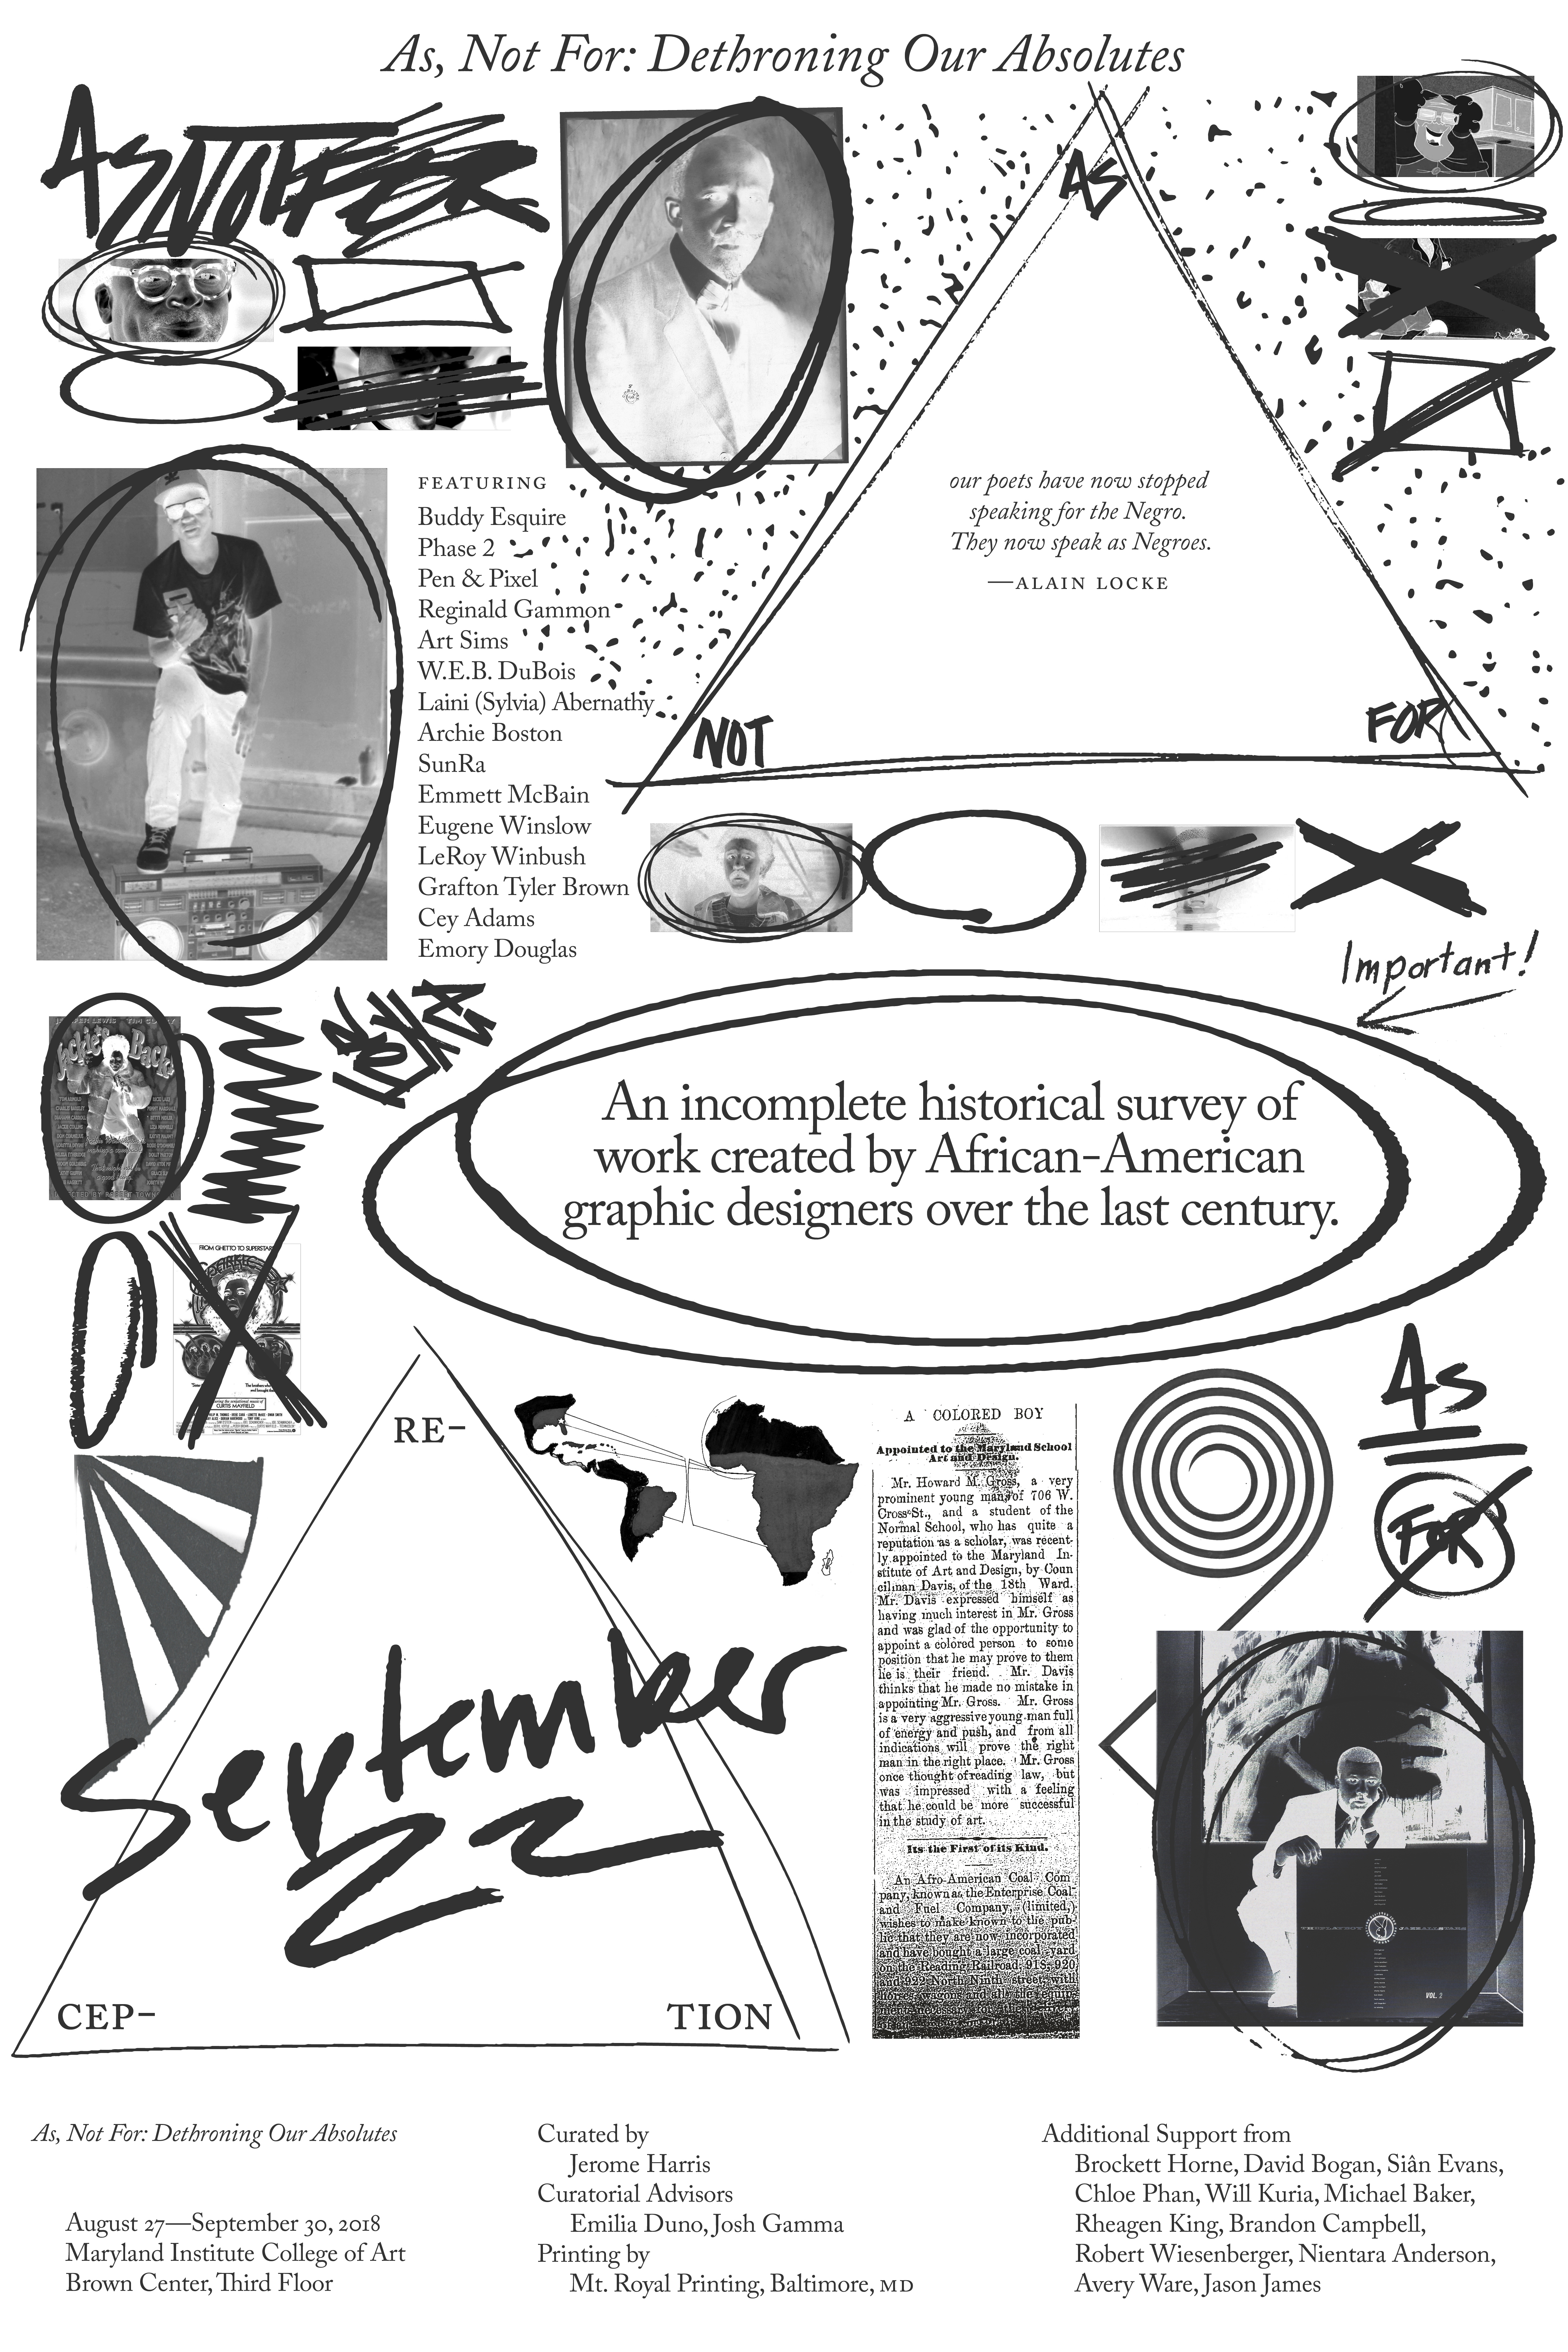 As, Not For: Dethroning Our Absolutes
AS NOT FOR
AS
our poets have now stopped
speaking for the Negro.
They now speak as Negroes.
—ALAIN LOCKE
NOT
FOR
FEATURING
Buddy Esquire
Phase 2
Pen & Pixel
Reginald Gammon
Art Sims
W.E.B. DuBois
Laini (Sylvia) Abernathy
Archie Boston
SunRa
Emmett McBain
Eugene Winslow
LeRoy Winbush
Grafton Tyler Brown
Cey Adams
Emory Douglas
Important!
AS
NOT
FOR
An incomplete historical survey of
work created by African-American
graphic designers over the last century.
Back!
FROM GHETTO TO SUPERSTARS
CURTIS MAYFIELD
RE-
CEP-
TION
September
22
A COLORED BOY
Appointed to the Maryland School
Art and Design.
Mr. Howard M. Gross, a very
prominent young man of 706 W.
Cross St., and a student of the
Normal School, who has quite a
reputation as a scholar, was recent-
ly appointed to the Maryland In-
stitute of Art and Design, by Coun
cilman Davis, of the 18th Ward.
Mr. Davis expressed himself as
having much interest in Mr. Gross
and was glad of the opportunity to
appoint a colored person to some
position that he may prove to them
he is their friend. Mr. Davis
thinks that he made no mistake in
appointing Mr. Gross. Mr. Gross
is a very aggressive young man full
of energy and push, and from all
indications will prove the right
man in the right place. Mr. Gross
once thought of reading law, but
was impressed with a feeling
that he could be more successful
in the study of art.
Its the First of its Kind.
An Afro-American Coal Com
pany, known as the Enterprise Coal
and Fuel Company, (limited,)
wishes to make known to the pub-
lic that they are now incorporated
and have bought a large coal yard
on the Reading Railroad, 918, 920
and 922 North Ninth street, with
As
FOR
VOL. 2
As, Not For: Dethroning Our Absolutes
August 27—September 30, 2018
Maryland Institute College of Art
Brown Center, Third Floor
Curated by
Jerome Harris
Curatorial Advisors
Emilia Duno, Josh Gamma
Printing by
Mt. Royal Printing, Baltimore, MD
Additional Support from
Brockett Horne, David Bogan, Siân Evans,
Chloe Phan, Will Kuria, Michael Baker,
Rheagen King, Brandon Campbell,
Robert Wiesenberger, Nientara Anderson,
Avery Ware, Jason James